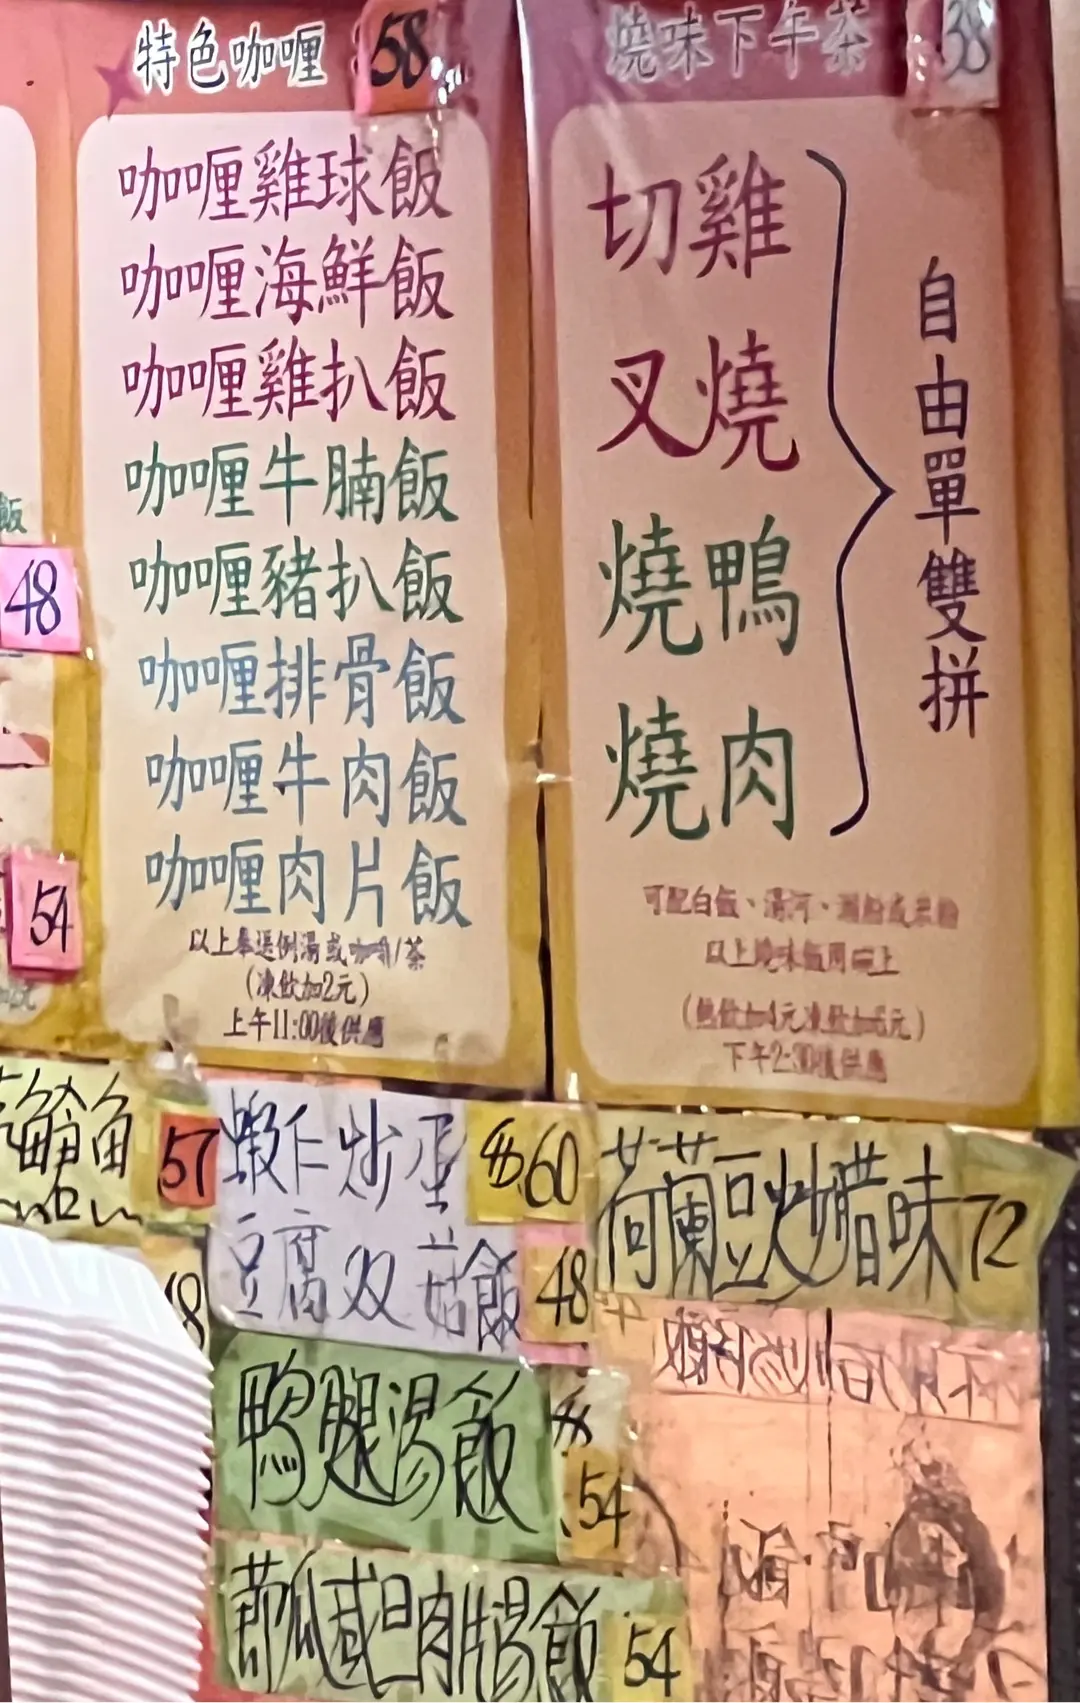 特色咖喱 58
咖喱雞球飯
咖喱海鮮飯
咖喱雞扒飯
咖喱牛腩飯
咖喱豬扒飯
咖喱排骨飯
咖喱牛肉飯
咖喱肉片飯
以上奉送例湯或咖啡/茶
(凍飲加2元)
上午11:00後供應
燒味下午茶 38
切雞
叉燒
燒鴨
燒肉
自由單雙拼
可配白飯、湯河、瀨粉或米粉
以上燒味飯同
(熱飲加4元凍飲加元)
下午2:30後供應
飯
48
54
魚
57
蝦仁炒蛋 60
豆腐双菇飯 48
荷蘭豆炒腊味 72
鴨腿湯飯
54
節瓜咸旦肉片湯飯 54